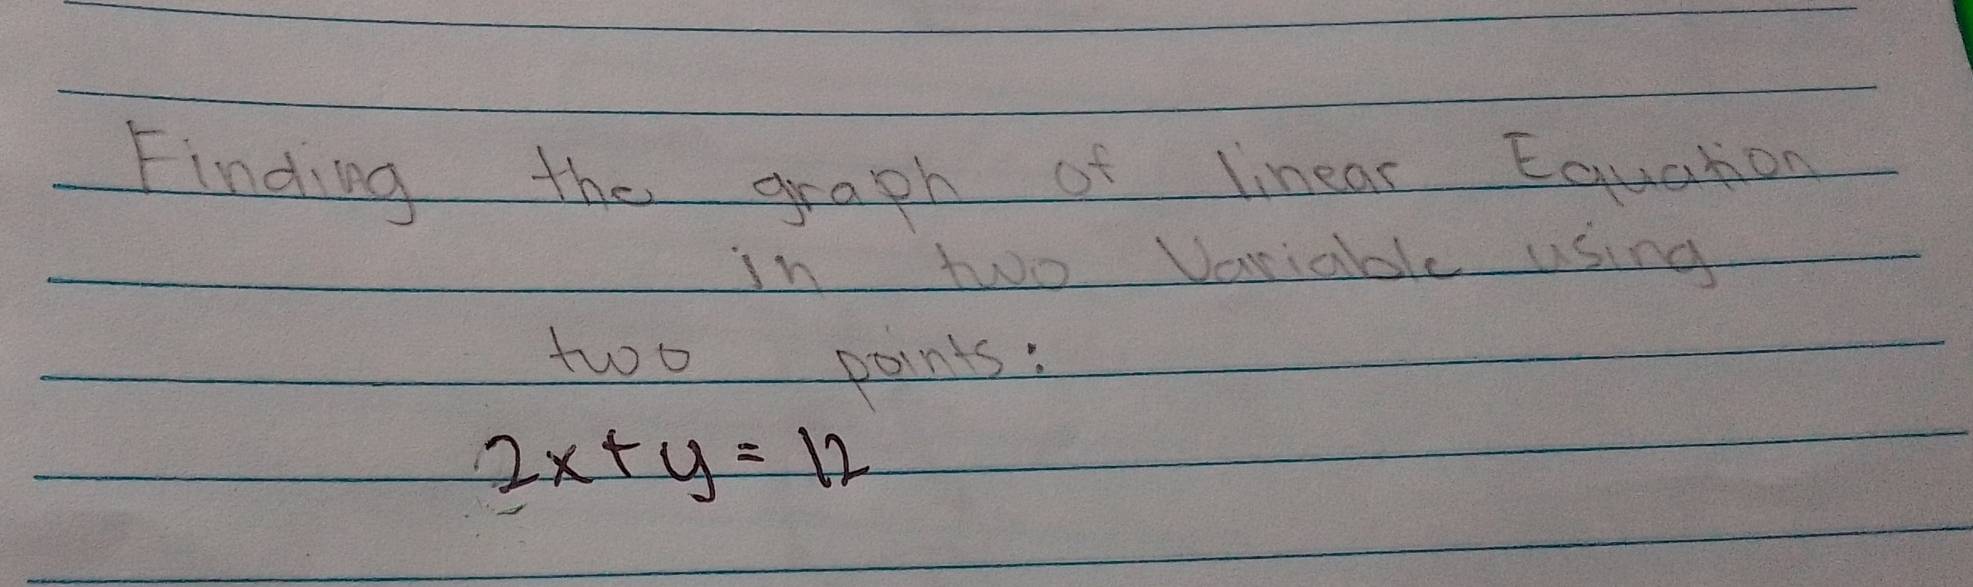 Finding the graph of linear Equation
in two Variable using
two points:
2x+y=12